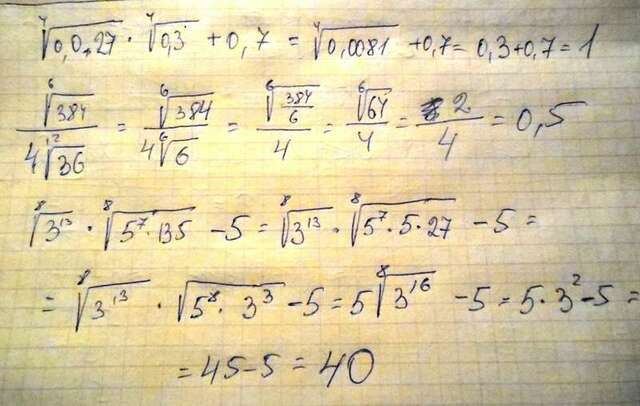 ⁴√0,0.27 · ⁴√0,3 + 0,7 = ⁴√0,0081 + 0,7 = 0,3 + 0,7 = 1
⁶√384 / 4 ¹²√36 = ⁶√384 / 4 ⁶√6 = ⁶√(384/6) / 4 = ⁶√64 / 4 = 2/4 = 0,5
⁸√3¹³ · ⁸√5⁷·135 − 5 = ⁸√3¹³ · ⁸√5⁷·5·27 − 5 =
= ⁸√3¹³ · √5⁸·3³ − 5 = 5 ⁸√3¹⁶ − 5 = 5·3² − 5 =
= 45 − 5 = 40